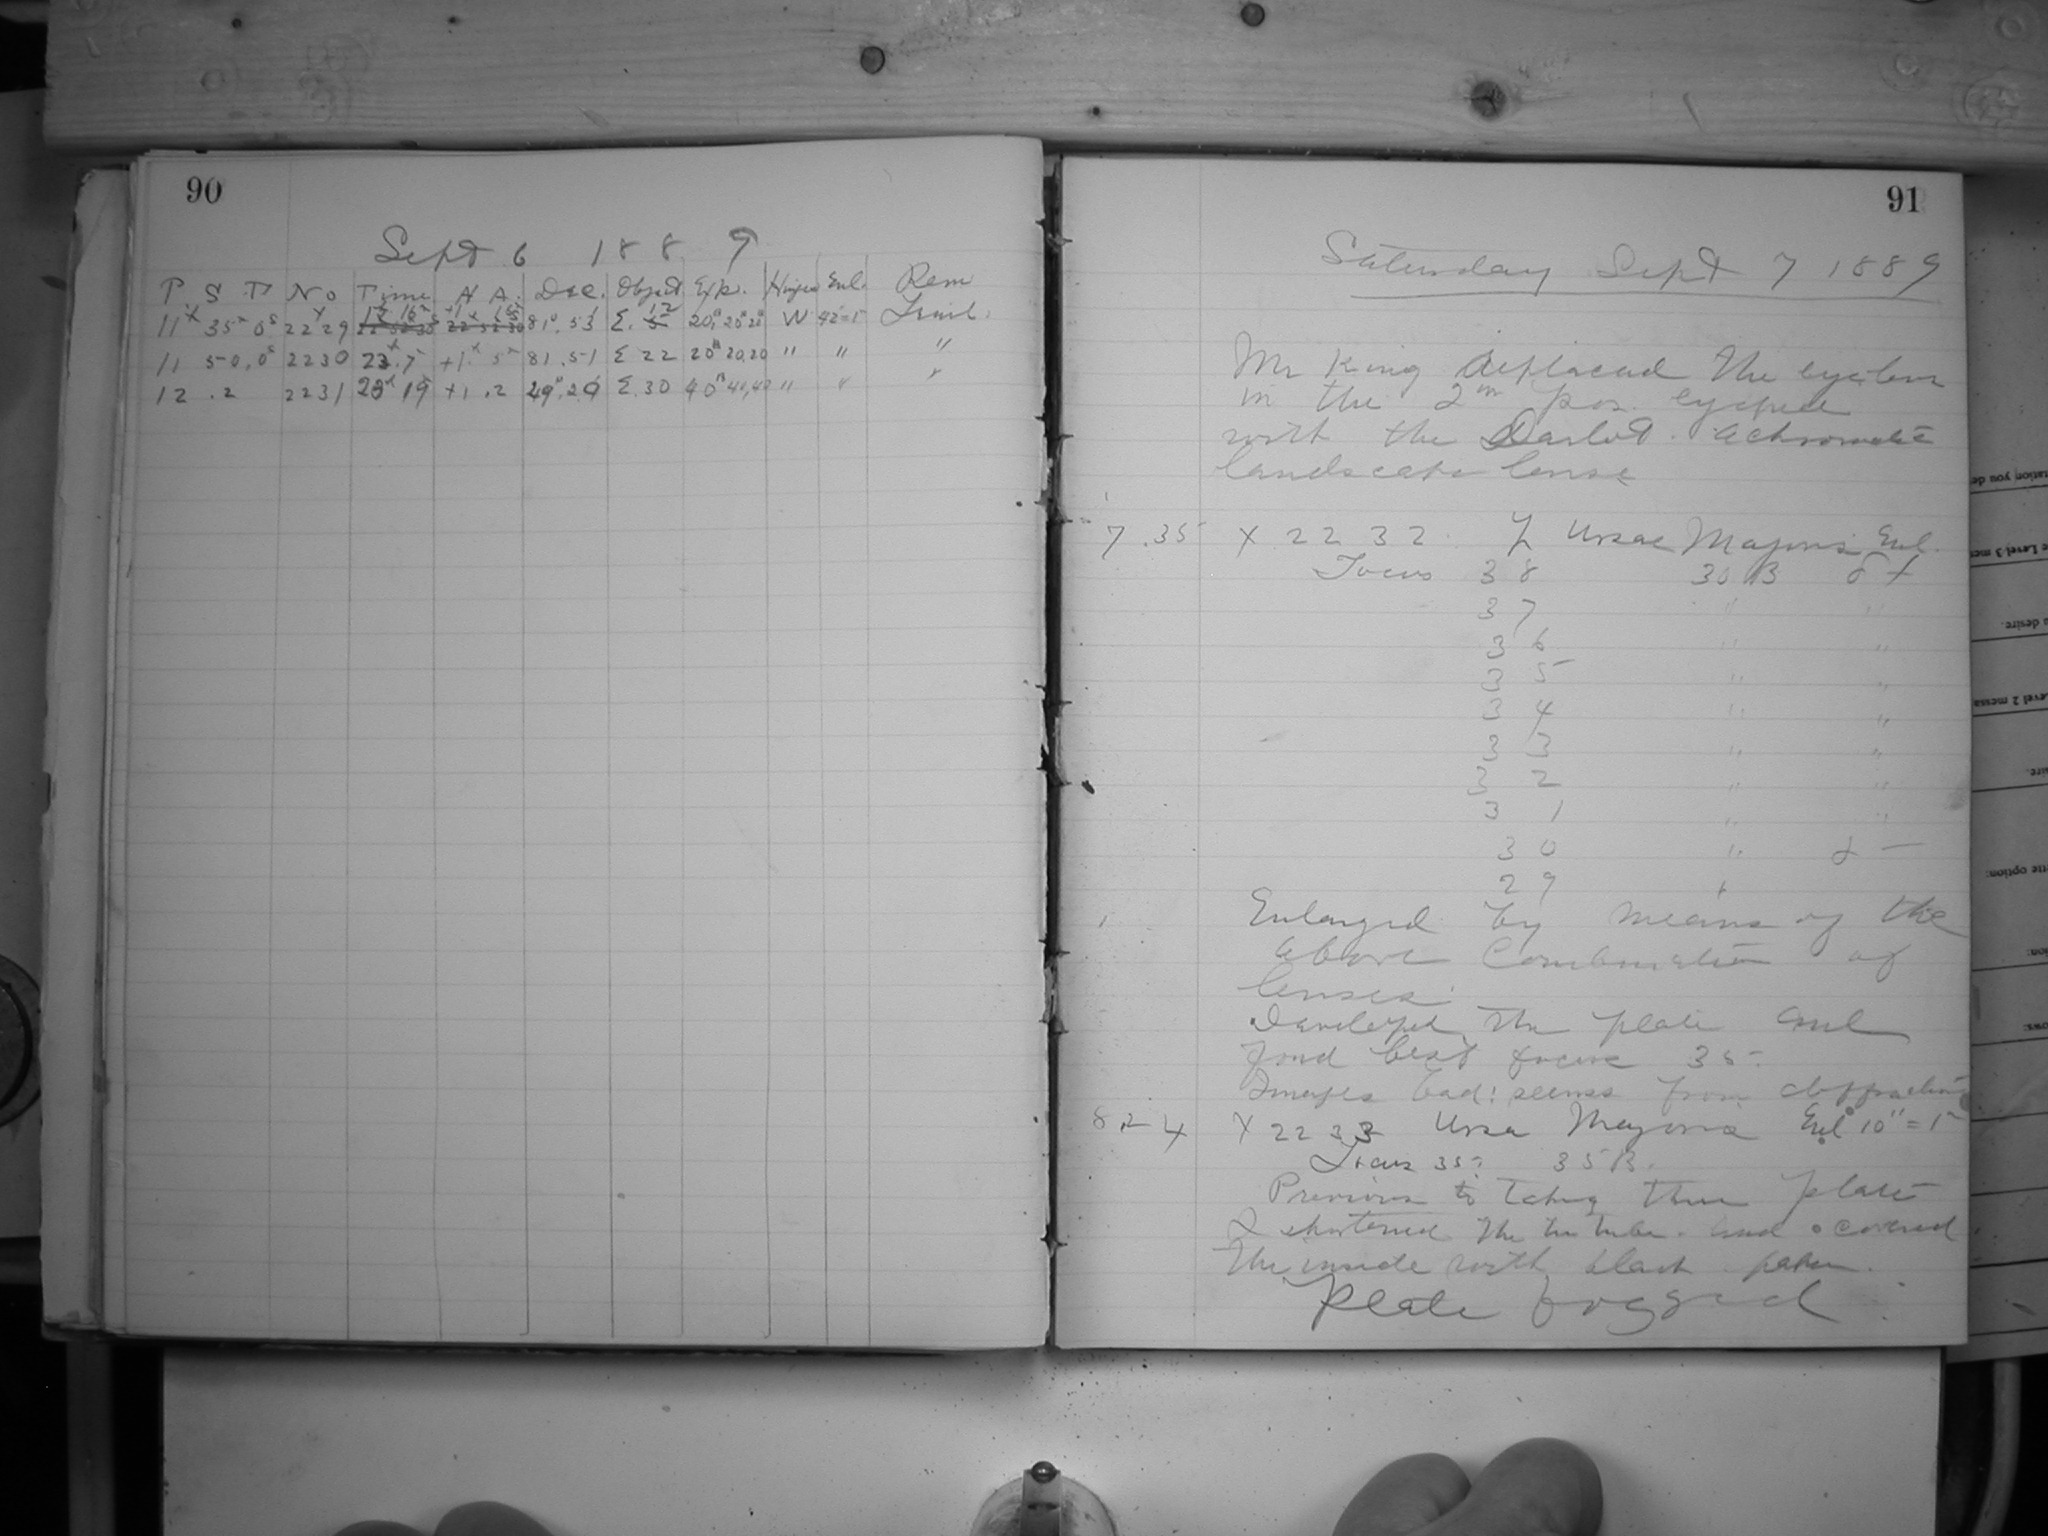 90
Sept 6 1889
P S T No Time H A. Dec. Object Exp. Enl. Rem
11 35 0 2229 81°.53 Σ. 20 20 20 W 42"=1 Trail.
11 50,0 2230 23.7 +1 5 81.51 Σ 22 20 20,20 " " "
12 .2 2231 23 19 +1 .2 49.20 Σ.30 40 40,40 " " "
91
Saturday Sept 7 1889
Mr King replaced the eyelens
in the 2in pos. eyepiece
with the Darlot Achromatic
landscape lense
7.35 X 2232 Ursae Majoris Enl.
Focus 38 30 B
37 " "
36 " "
35 " "
34 " "
33 " "
32 " "
31 " "
30 " –
29 "
Enlarged by means of the
above Combination of
lenses.
Developed the plate and
fond best focus 35.
Images bad: seems from diffraction
8.24 X 2233 Ursa Majoris Enl 10"=1
Focus 35. 35 B.
Previous to taking this plate
I shortened the tube and covered
the inside with black paper.
Plate fogged